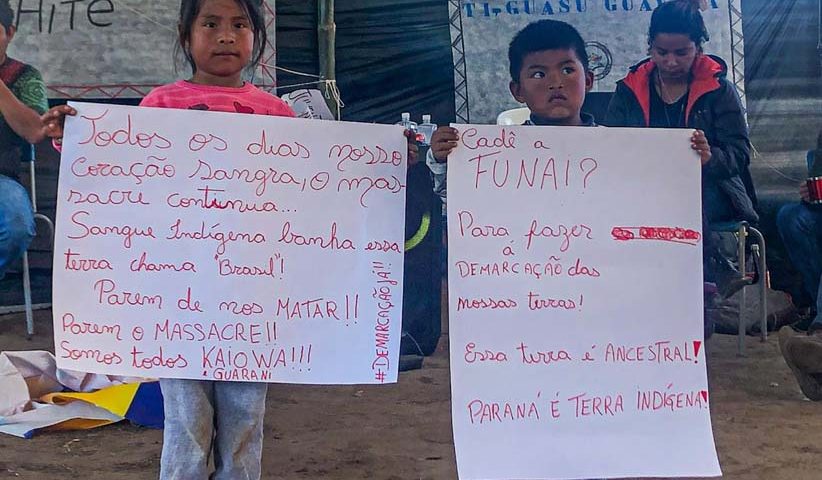 HITE
TI-GUASU GUARA
Todos os dias nosso
coração sangra, o mas-
sacre continua...
Sangue Indígena banha essa
terra chama "Brasil"!
Parem de nos MATAR!!
Parem o MASSACRE!!
Somos todos KAIOWA!!!
GUARANI
#DEMARCAÇÃO JÁ!!
Cadê a
FUNAI?
Para fazer
à
DEMARCAÇÃO das
nossas terras!
Essa terra é ANCESTRAL!
PARANÁ É TERRA INDÍGENA!